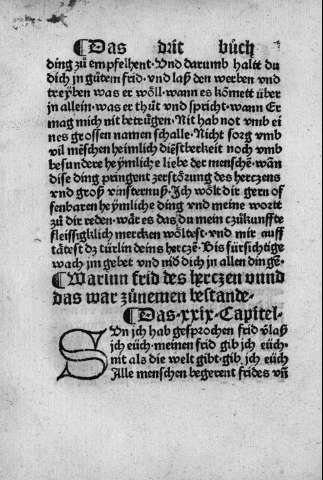 ¶Das drit bůch
ding zů empfelhent · Und darumb haltt du
dich in gůtem frid · vnd laß den werben vnd
treyben was er wöll · wann es kömett über
jn allein · was er thůt vnd spricht · wann Er
mag mich nit betrůgen · Nit hab not vmb ei
nes grossen namen schalle · Nicht sorg vmb
vil mēschen heimlich diēstberkeit noch vmb
besundere heymliche liebe der menschē · wān
dise ding pringent zerstőzung des herczens
vnd groß vinsternuß · Ich wőlt dir gern of
fenbaren heymliche ding vnd meine wortt
zů dir reden · wār es das du mein czůkunffte
fleissigklich mercken wőltest · vnd mir auff
tātest dz türlin deins hertczē · Bis fürsichtige
wach jm gebet vnd nid dich in allen dingē ·
¶Warinn frid des herczen vnnd
das war zůnemen bestande ·
¶Das · xxix · Capitel ·
SUn ich hab gesprochen frid vlaß
jch eüch · meinen frid gib jch eüch ·
nit als die welt gibt · gib jch eüch
Alle menschen begerent frides vñ